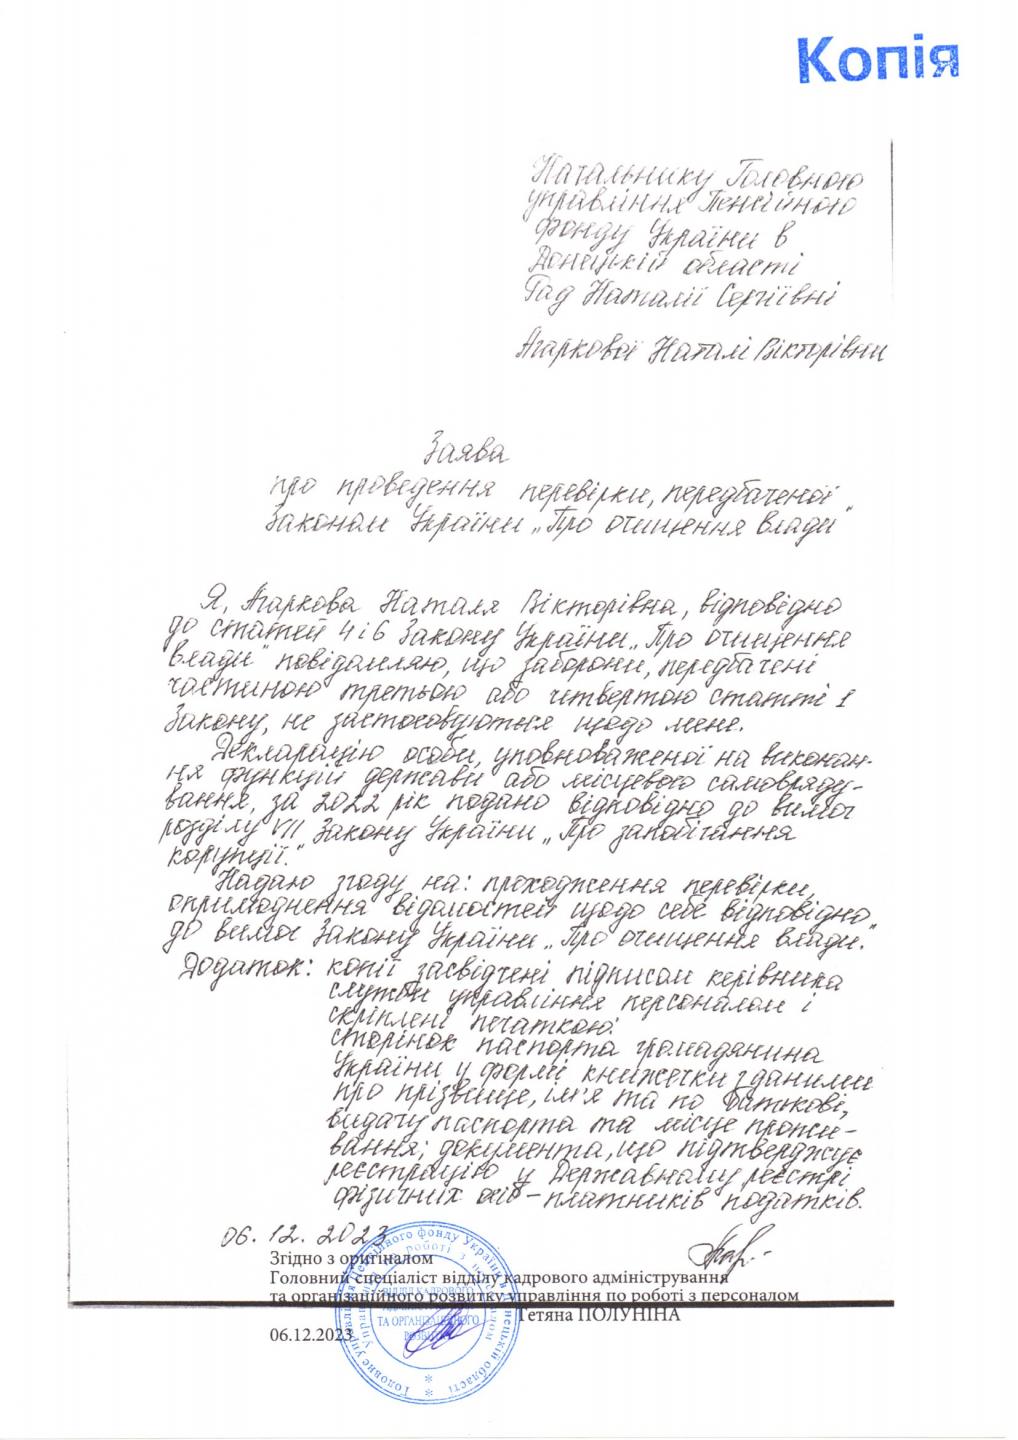 Копія
Начальнику Головного
управління Пенсійного
фонду України в
Донецькій області
Гад Наталії Сергіївні
Агаркової Наталі Вікторівни
Заява
про проведення перевірки, передбаченої
Законом України „Про очищення влади"
Я, Агаркова Наталя Вікторівна, відповідно
до статей 4 і 6 Закону України „Про очищення
влади" повідомляю, що заборони, передбачені
частиною третьою або четвертою статті 1
Закону, не застосовуються щодо мене.
Декларацію особи, уповноваженої на виконан-
ня функцій держави або місцевого самовряду-
вання, за 2022 рік подано відповідно до вимог
розділу VII Закону України „Про запобігання
корупції."
Надаю згоду на: проходження перевірки,
оприлюднення відомостей щодо себе відповідно
до вимог Закону України „Про очищення влади."
Додаток: копії засвідчені підписом керівника
служби управління персоналом і
скріплені печаткою:
сторінок паспорта громадянина
України у формі книжечки з даними
про прізвище, ім'я та по батькові,
видачу паспорта та місце прожи-
вання; документа, що підтверджує
реєстрацію у Державному реєстрі
фізичних осіб – платників податків.
06.12.2023
Згідно з оригіналом
Головний спеціаліст відділу кадрового адміністрування
та організаційного розвитку управління по роботі з персоналом
Тетяна ПОЛУНІНА
06.12.2023
Головне управління Пенсійного фонду України в Донецькій області
управління по роботі з персоналом
ВІДДІЛ КАДРОВОГО
АДМІНІСТРУВАННЯ
ТА ОРГАНІЗАЦІЙНОГО
РОЗВИТКУ